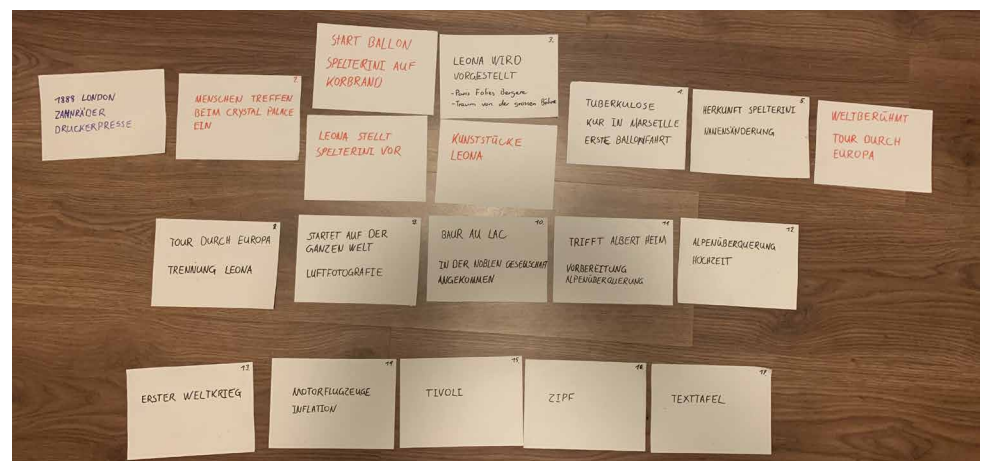 1888 LONDON
ZAHNRÄDER
DRUCKERPRESSE
2.
MENSCHEN TREFFEN
BEIM CRYSTAL PALACE
EIN
START BALLON
SPELTERINI AUF
KORBRAND
LEONA STELLT
SPELTERINI VOR
3.
LEONA WIRD
VORGESTELLT
- Paris Folies Bergere
- Traum von der grossen Bühne
KUNSTSTÜCKE
LEONA
4.
TUBERKULOSE
KUR IN MARSEILLE
ERSTE BALLONFAHRT
5.
HERKUNFT SPELTERINI
NAMENSÄNDERUNG
WELTBERÜHMT
TOUR DURCH
EUROPA
8.
TOUR DURCH EUROPA
TRENNUNG LEONA
9.
STARTET AUF DER
GANZEN WELT
LUFTFOTOGRAFIE
10.
BAUR AU LAC
IN DER NOBLEN GESELLSCHAFT
ANGEKOMMEN
11.
TRIFFT ALBERT HEIM
VORBEREITUNG
ALPENÜBERQUERUNG
12.
ALPENÜBERQUERUNG
HOCHZEIT
13.
ERSTER WELTKRIEG
14.
MOTORFLUGZEUGE
INFLATION
15.
TIVOLI
16.
ZIPF
17.
TEXTTAFEL